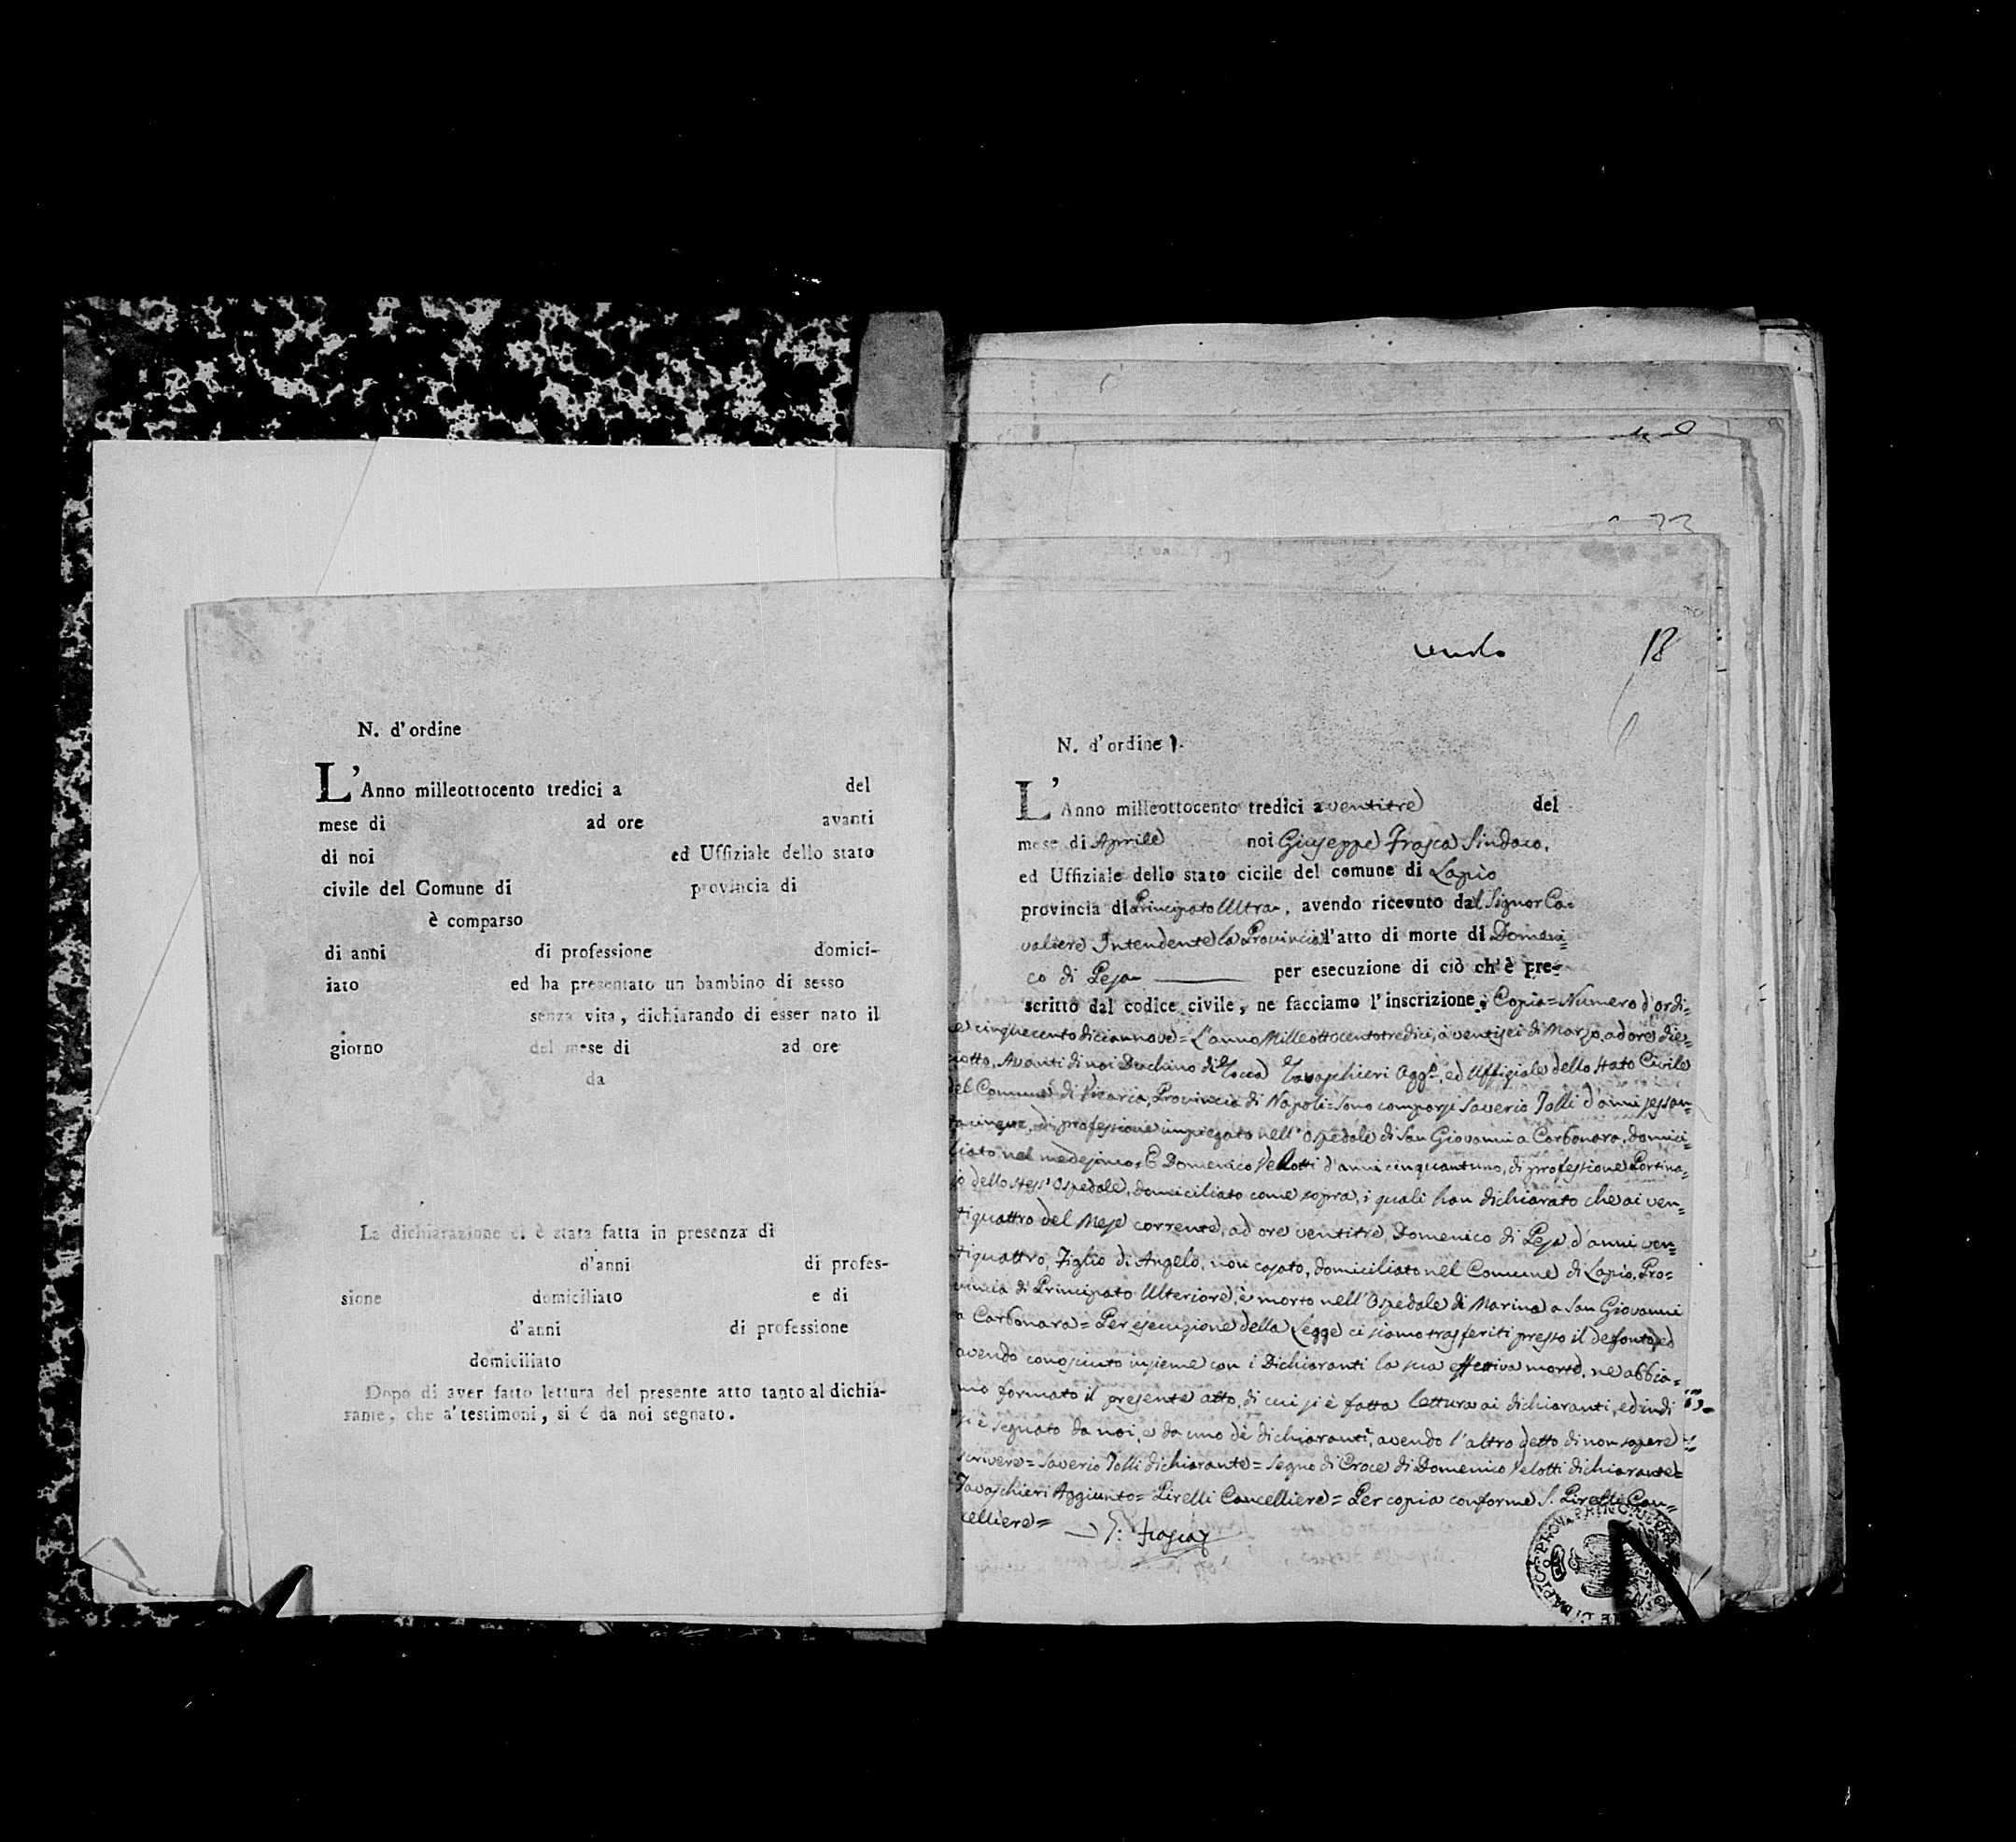 N. d'ordine
L'Anno milleottocento tredici a del
mese di ad ore avanti
di noi ed Uffiziale dello stato
civile del Comune di provincia di
è comparso
di anni di professione domici-
iato ed ha presentato un bambino di sesso
senza vita, dichiarando di esser nato il
giorno del mese di ad ore
da
La dichiarazione si è stata fatta in presenza di
d'anni di profes-
sione domiciliato e di
d'anni di professione
domiciliato
Dopo di aver fatto lettura del presente atto tanto al dichia-
rante, che a' testimoni, si é da noi segnato.
18
N. d'ordine 1.
L'Anno milleottocento tredici a ventitre del
mese di Aprile noi Giuseppe Frasca Sindaco,
ed Uffiziale dello stato cicile del comune di Lapio
provincia di Principato Ultra, avendo ricevuto dal Signor Ca=
valiere Intendente la Provincia l'atto di morte di Domeni=
co di Peja per esecuzione di ciò ch'è pre-
scritto dal codice civile, ne facciamo l'inscrizione; Copia = Numero d'ordi=
ne cinquecentodiciannove = L'anno Milleottocentotredici, à ventisei di Marzo, ad ore die=
ciotto, Avanti di noi di Tocco Tavaschieri Agg.to, ed Uffiziale dello Stato Civile
del Comune di Vicaria, Provincia di Napoli = sono comparsi Saverio Jolli d'anni sessan=
tacinque, di professione impiegato nell'Ospedale di San Giovanni a Carbonara, domici=
liato nel medesimo, E Domenico Velotti d'anni cinquantuno, di professione Portina=
jo dello stess'Ospedale, domiciliato come sopra, i quali han dichiarato che ai ven=
tiquattro del Mese corrente, ad ore ventitre, Domenico di Peja, d'anni ven=
tiquattro, Figlio di Angelo, non casato, domiciliato nel Comune di Lapio, Pro=
vincia di Principato Ulteriore, è morto nell'Ospedale di Marina a San Giovanni
a Carbonara = Per esecuzione della Legge ci siamo trasferiti presso il defonto, ed
avendo conosciuto insieme con i Dichiaranti la sua effettiva morte, ne abbia=
mo formato il presente atto, di cui si è fatta lettura ai dichiaranti, ed indi
si è segnato da noi, e da uno de' dichiaranti, avendo l'altro detto di non sapere
scrivere = Saverio Jolli dichiarante = Segno di Croce di Domenico Velotti dichiarante =
Tavaschieri Aggiunto = Pirelli Cancelliere = Per copia conforme S. Pirelli Can=
celliere =
G: Frasca